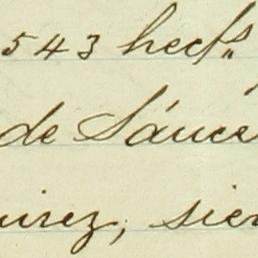 543 hect.s
de Sáuce
uirez, sien